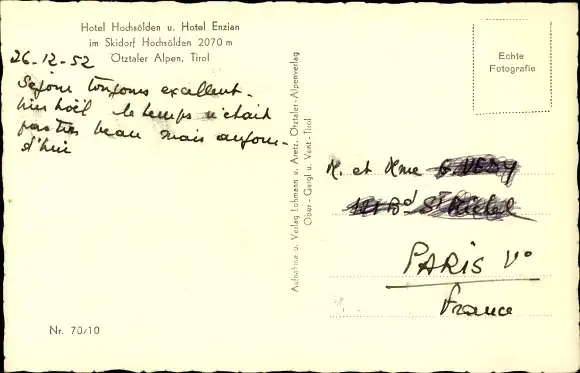 Hotel Hochsölden u. Hotel Enzian
im Skidorf Hochsölden 2070 m
Ötztaler Alpen, Tirol
26-12-52
Séjour toujours excellent.
hier Noël le temps n'était
pas très beau mais aujour-
d'hui
Nr. 70/10
Aufnahme u. Verlag Lohmann u. Aretz, Ötztaler-Alpenverlag
Ober-Gurgl u. Vent-Tirol
Echte
Fotografie
M. et Mme
Bd St Michel
PARIS V°
France